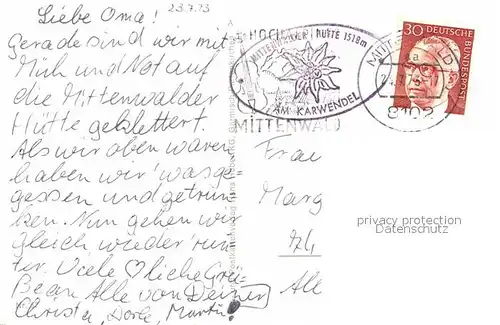 Liebe Oma! 23.7.73
Gerade sind wir mit
Müh und Not auf
die Mittenwalder
Hütte geklettert.
Als wir oben waren
haben wir was ge-
gessen und getrun-
ken. Nun gehen wir
gleich wieder run-
ter. Viele ♡liche Grü-
ße an Alle von Deiner
Christa, Dorle, Martin!
MITTENWALDER HÜTTE 1518m
AM KARWENDEL
MITTENWALD
8102
30 DEUTSCHE
BUNDESPOST
Frau
Marg
privacy protection
Datenschutz